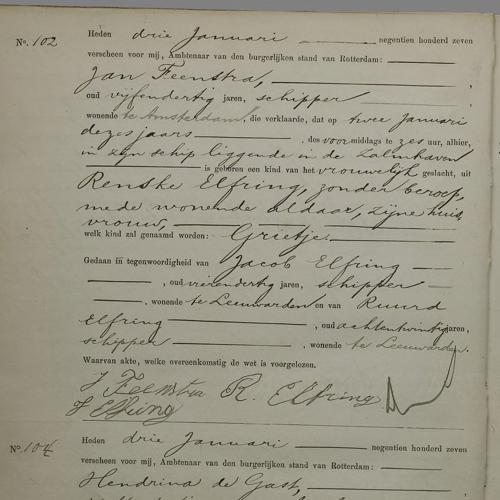 No. 102 Heden drie Januari negentien honderd zeven
verscheen voor mij, Ambtenaar van den burgerlijken stand van Rotterdam:
Jan Feenstra,
oud vijfendertig jaren, schipper
wonende te Amsterdam, die verklaarde, dat op twee Januari
dezes jaars, des voormiddags te zes ure, alhier,
in zijn schip liggende in de Zalmhaven
is geboren een kind van het vrouwelijk geslacht, uit
Renske Elfring, zonder beroep,
mede wonende aldaar, zijne huis
vrouw,
welk kind zal genaamd worden: Grietje.
Gedaan in tegenwoordigheid van Jacob Elfring
, oud vierendertig jaren, schipper
, wonende te Leeuwarden en van Ruurd
Elfring, oud achtentwintig jaren,
schipper, wonende te Leeuwarden.
Waarvan akte, welke overeenkomstig de wet is voorgelezen.
J Feenstra R. Elfring
J Elfring
No. 104 Heden drie Januari negentien honderd zeven
verscheen voor mij, Ambtenaar van den burgerlijken stand van Rotterdam:
Hendrina de Gast,